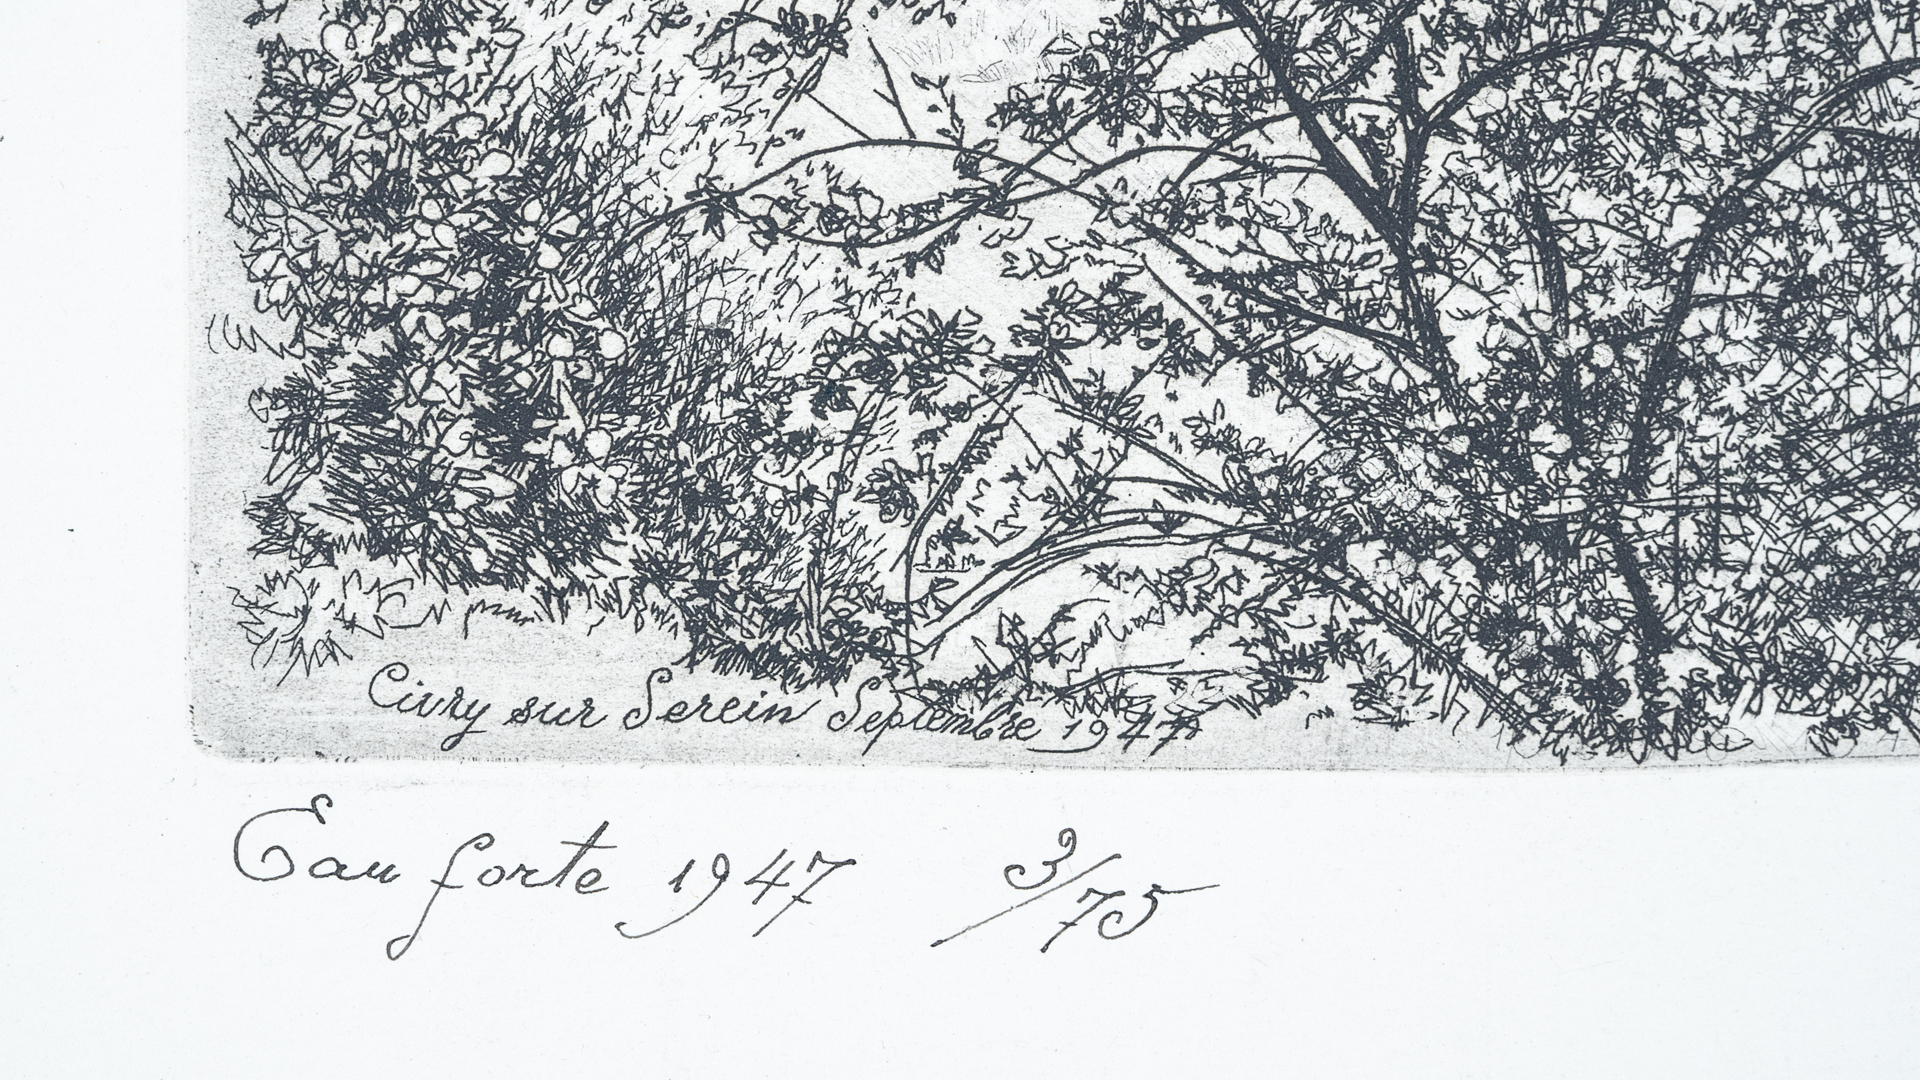 Civry sur Serein Septembre 1947
Eau forte 1947 3/75